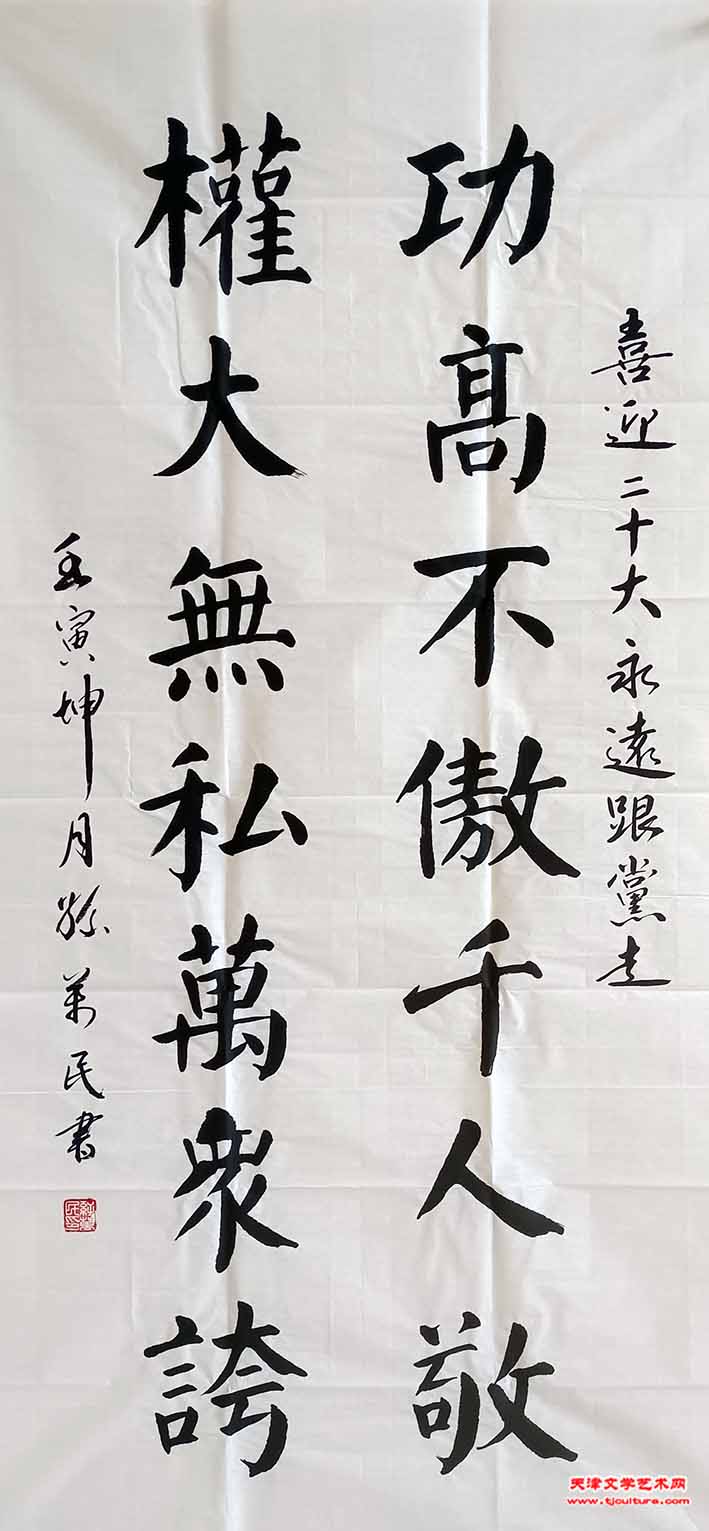 喜迎二十大永遠跟黨走
功髙不傲千人敬
權大無私萬衆誇
壬寅坤月萬民書
天津文学艺术网
www.tjculture.com